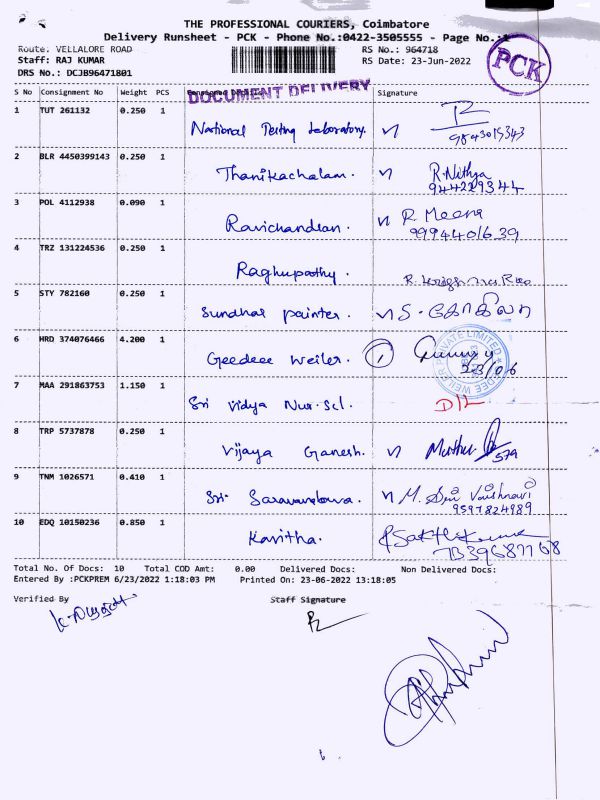 THE PROFESSIONAL COURIERS, Coimbatore
Delivery Runsheet - PCK - Phone No.:0422-3505555 - Page No.:1
Route: VELLALORE ROAD
Staff: RAJ KUMAR
DRS No.: DCJB96471801
RS No.: 964718
RS Date: 23-Jun-2022
PCK
S No Consignment No Weight PCS Signature
DOCUMENT DELIVERY
1 TUT 261132 0.250 1 National Testing Laboratory.
2 BLR 4450399143 0.250 1 Thanikachalam. R. Nithya
944229344
3 POL 4112938 0.090 1 Ravichandran. R. Meena
9994401639
4 TRZ 131224536 0.250 1 Raghupathy.
5 STY 782160 0.250 1 Sundhar painter. S. கோகிலா
6 HRD 374076466 4.200 1 Geedeee weiler. 1
23/06
DEE WEILER PRIVATE LIMITED
7 MAA 291863753 1.150 1 Sri vidya Nur. Scl. D/L
8 TRP 5737878 0.250 1 Vijaya Ganesh. Muthu
579
9 TNM 1026571 0.410 1 Sri. M. Sri Vaishnavi
9597824989
10 EDQ 10150236 0.850 1 Kavitha.
7339687768
Total No. Of Docs: 10 Total COD Amt: 0.00 Delivered Docs: Non Delivered Docs:
Entered By :PCKPREM 6/23/2022 1:18:03 PM Printed On: 23-06-2022 13:18:05
Verified By Staff Signature